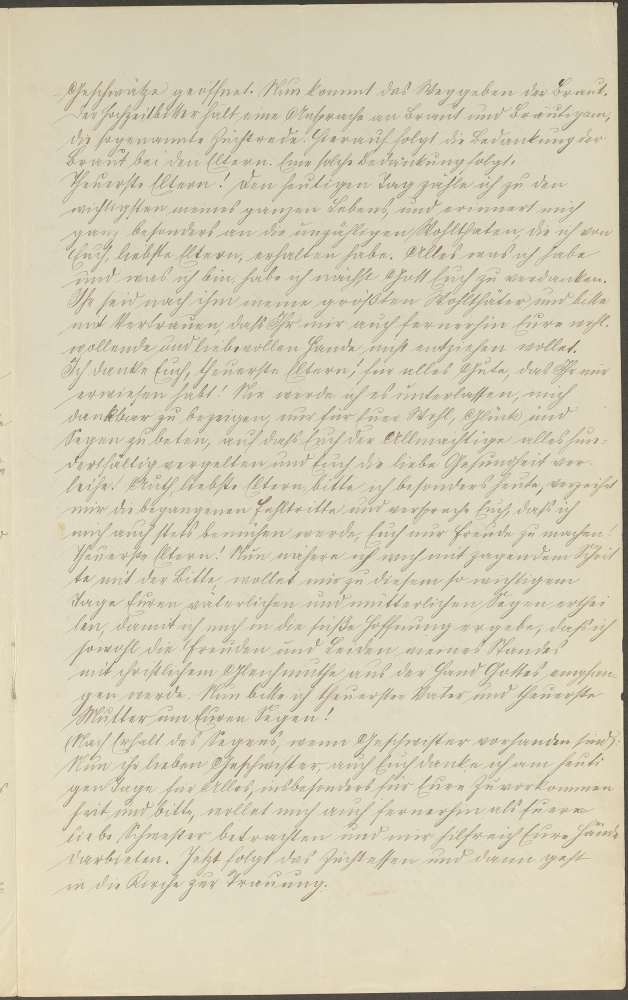 Geschwätze geoffnet. Nun kommt das Weggeben der Braut.
Der Hochzeitbitter halt eine Ansprache an Braut und Bräutigam,
die sogenannte Zuchtrede. Hierauf folgt die Bedankung der
Braut bei den Eltern. Eine solche Bedankung folgt.
Theuerste Eltern! Den heutigen Tag zähle ich zu den
wichtigsten meines ganzen Lebens, und erinnert mich
ganz besonders an die unzähligen Wohlthaten, die ich von
Euch, liebste Eltern, erhalten habe. Alles was ich habe
und was ich bin, habe ich nächst Gott Euch zu verdanken.
Ihr seid nach ihm meine größten Wohlthäter, und bitte
mit Vertrauen, daß Ihr mir auch fernerhin Eure wohl-
wollende und liebevollen Hande nicht entziehen wollet.
Ich danke Euch, theuerste Eltern, für alles Gute, das Ihr mir
erwiesen habt! Nie werde ich es unterlassen, mich
dankbar zu bezeigen, nur für Euer Wohl, Glück und
Segen zu beten, auf daß Euch der Allmächtige alles hun-
dertfältig vergelten und Euch die liebe Gesundheit ver-
leihe. Auch, liebste Eltern, bitte ich besonders heute, verzeihet
mir die begangenen Fehltritte und verspreche Euch, daß ich
mich auch stets bemühen werde, Euch nur Freude zu machen!
Theuerste Eltern! Nun nahere ich mich mit zagendem Schrit
te mit der Bitte, wollet mir zu diesem so wichtigem
Tage Euren väterlichen und mütterlichen Segen erthei
len, damit ich mich in die süße Hoffnung ergebe, daß ich
sowohl die Freuden und Leiden meines Standes
mit christlichem Gleichmuthe aus der Hand Gottes empfan-
gen werde. Nun bitte ich theuerster Vater und theuerste
Mutter um Euren Segen!
(Nach Erhalt des Segens, wenn Geschwister vorhanden sind):
Nun ihr lieben Geschwister, auch Euch danke ich am heuti
gen Tage für Alles, insbesonders für Eure Zuvorkommen
heit und bitte, wollet mich auch fernerhin als Euere
liebe Schwester betrachten und mir hilfreich Eure Hände
darbieten. Jetzt folgt das Zuchtessen und dann geht
in die Kirche zur Trauung.